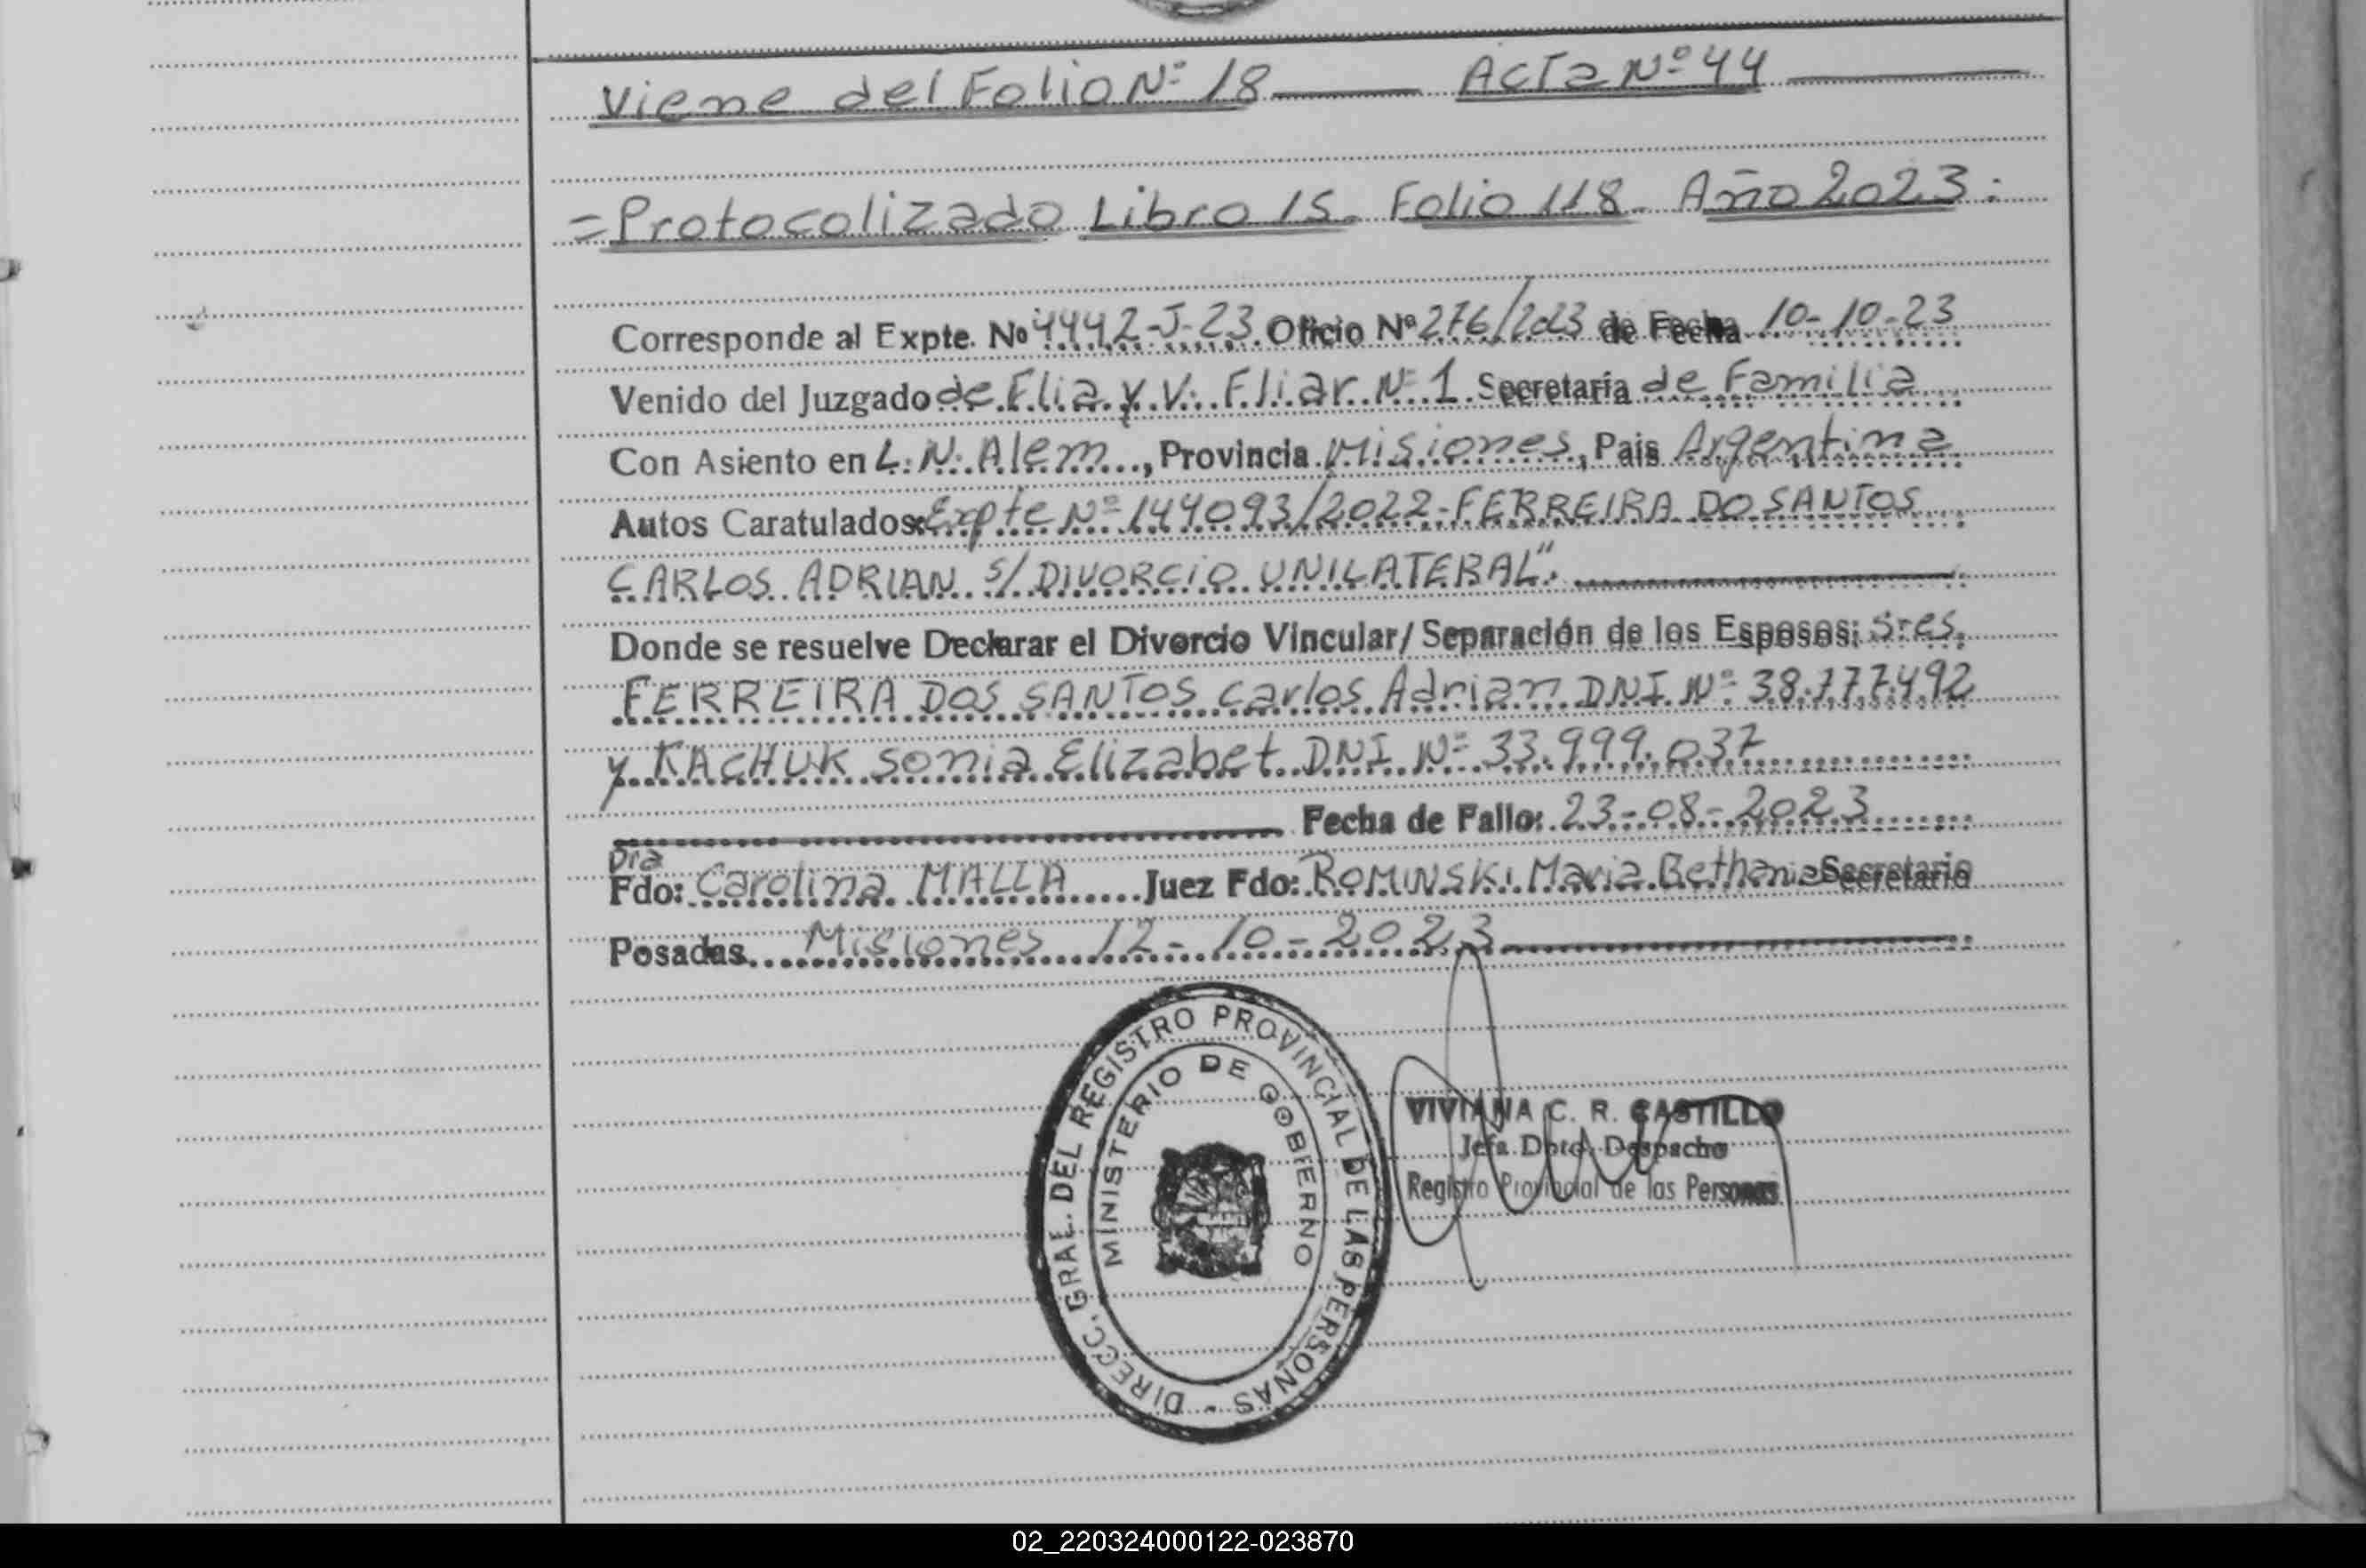 Viene del Folio Nº 18 Acta Nº 44
= Protocolizado Libro 15 - Folio 118 - Año 2023 :
Corresponde al Expte. Nº 4442-J-23 Oficio Nº 276/2023 de Fecha 10-10-23
Venido del Juzgado de Flia y V. Fliar Nº 1 Secretaría de Familia
Con Asiento en L. N. Alem, Provincia Misiones, Pais Argentina
Autos Caratulados: Expte Nº 144093/2022-FERREIRA DO SANTOS
CARLOS ADRIAN s/ DIVORCIO UNILATERAL".
Donde se resuelve Declarar el Divorcio Vincular/Separación de los Esposos; Sres.
FERREIRA DOS SANTOS Carlos Adrian DNI Nº 38.777.492
y KACHUK Sonia Elizabet DNI Nº 33.999.037
Fecha de Fallo: 23-08-2023
Dra
Fdo: Carolina MALLA Juez Fdo: ROMINSKI Maria Bethania Secretario
Posadas Misiones 12-10-2023
DIRECC. GRAL. DEL REGISTRO PROVINCIAL DE LAS PERSONAS -
MINISTERIO DE GOBIERNO
VIVIANA C. R. CASTILLO
Jefa Dpto. Despacho
Registro Provincial de las Personas
02_220324000122-023870